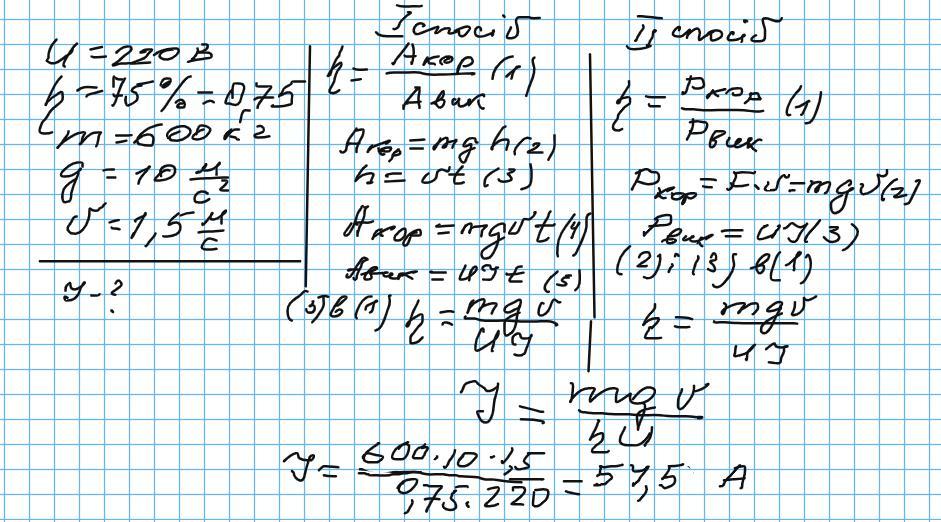 U = 220 В
η = 75% = 0,75
m = 600 кг
g = 10 м/с²
υ = 1,5 м/с
I - ?
I спосіб
η = Aкор / Aвик (1)
Aкор = mg h (2)
h = υt (3)
Aкор = mgυt (4)
Aвик = UIt (5)
(3) в (1) η = mgυ / UI
II спосіб
η = Pкор / Pвик (1)
Pкор = F·υ = mgυ (2)
Pвик = UI (3)
(2) і (3) в (1)
η = mgυ / UI
I = mgυ / ηU
I = 600·10·1,5 / 0,75·220 = 57,5 A